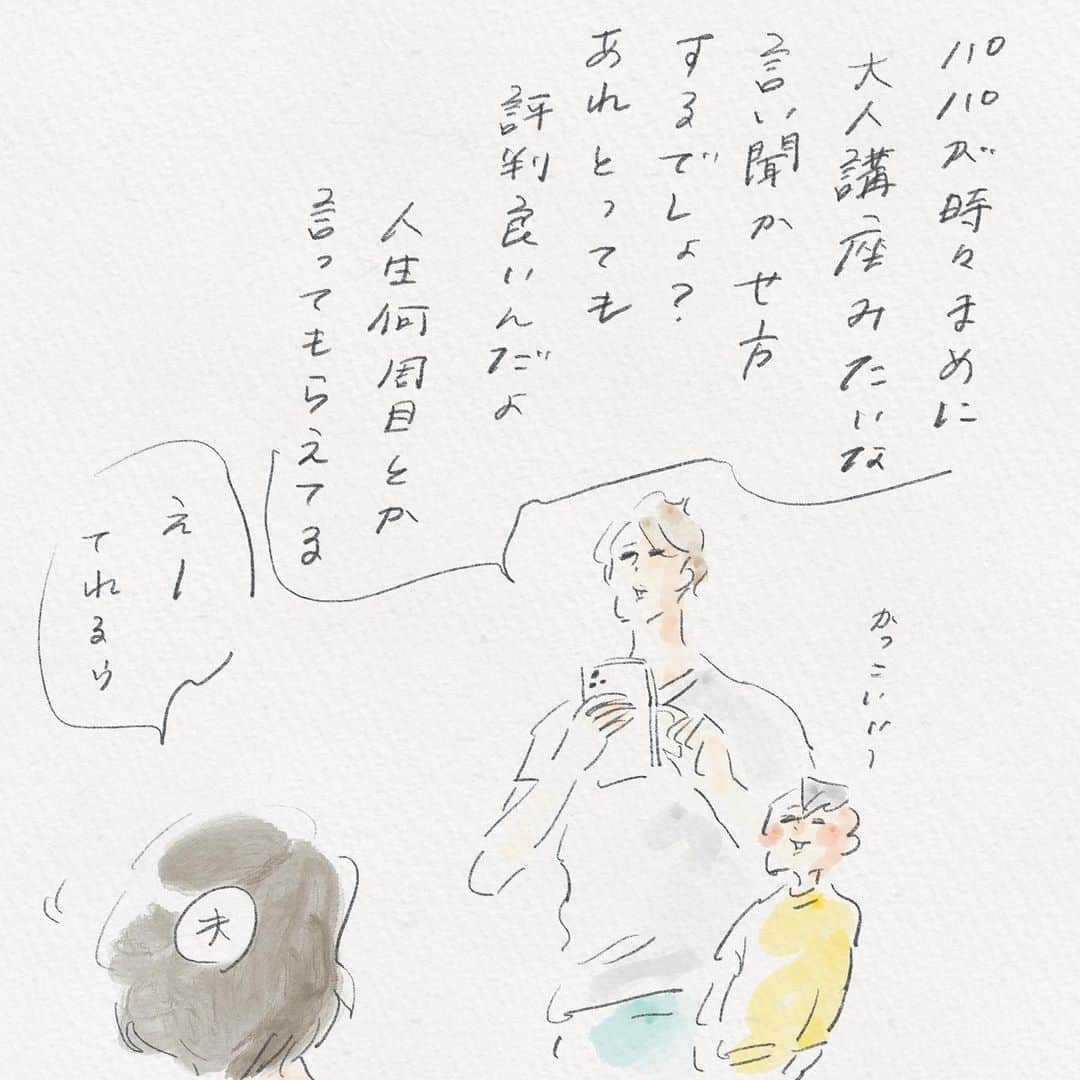 パパが時々まめに
大人講座みたいな
言い聞かせ方
するでしょ？
あれとっても
評判良いんだよ
人生何周目とか
言ってもらえてる
えー
てれるぅ
かっこいいー
夫